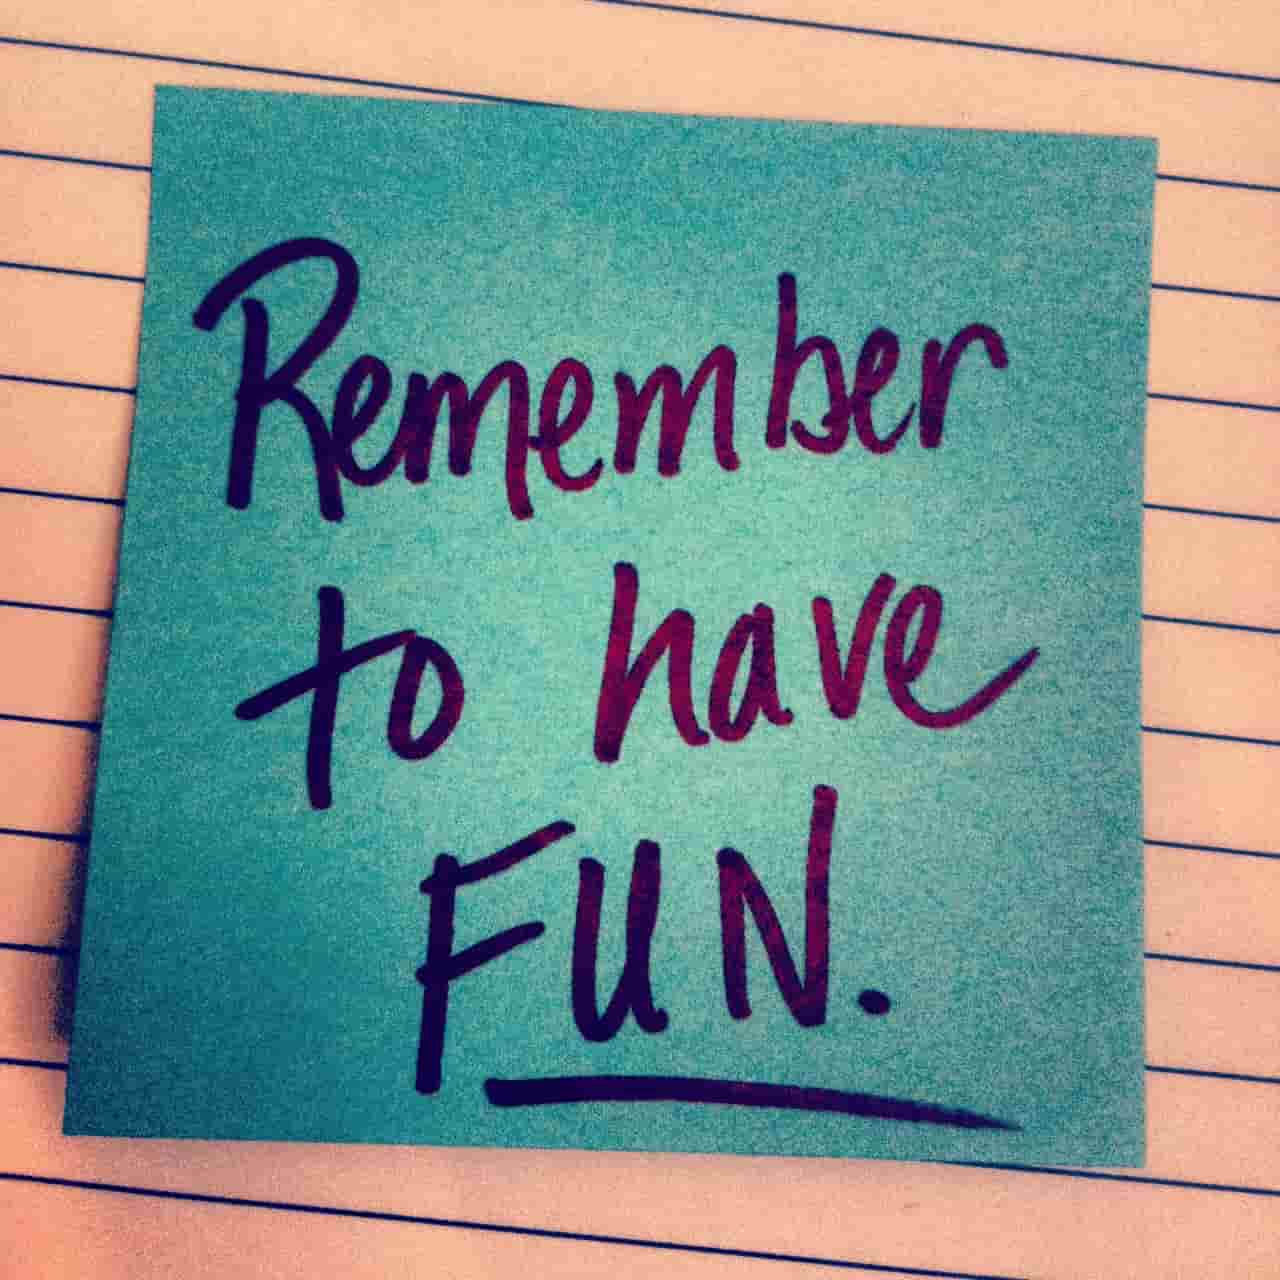 Remember
to have
FUN.